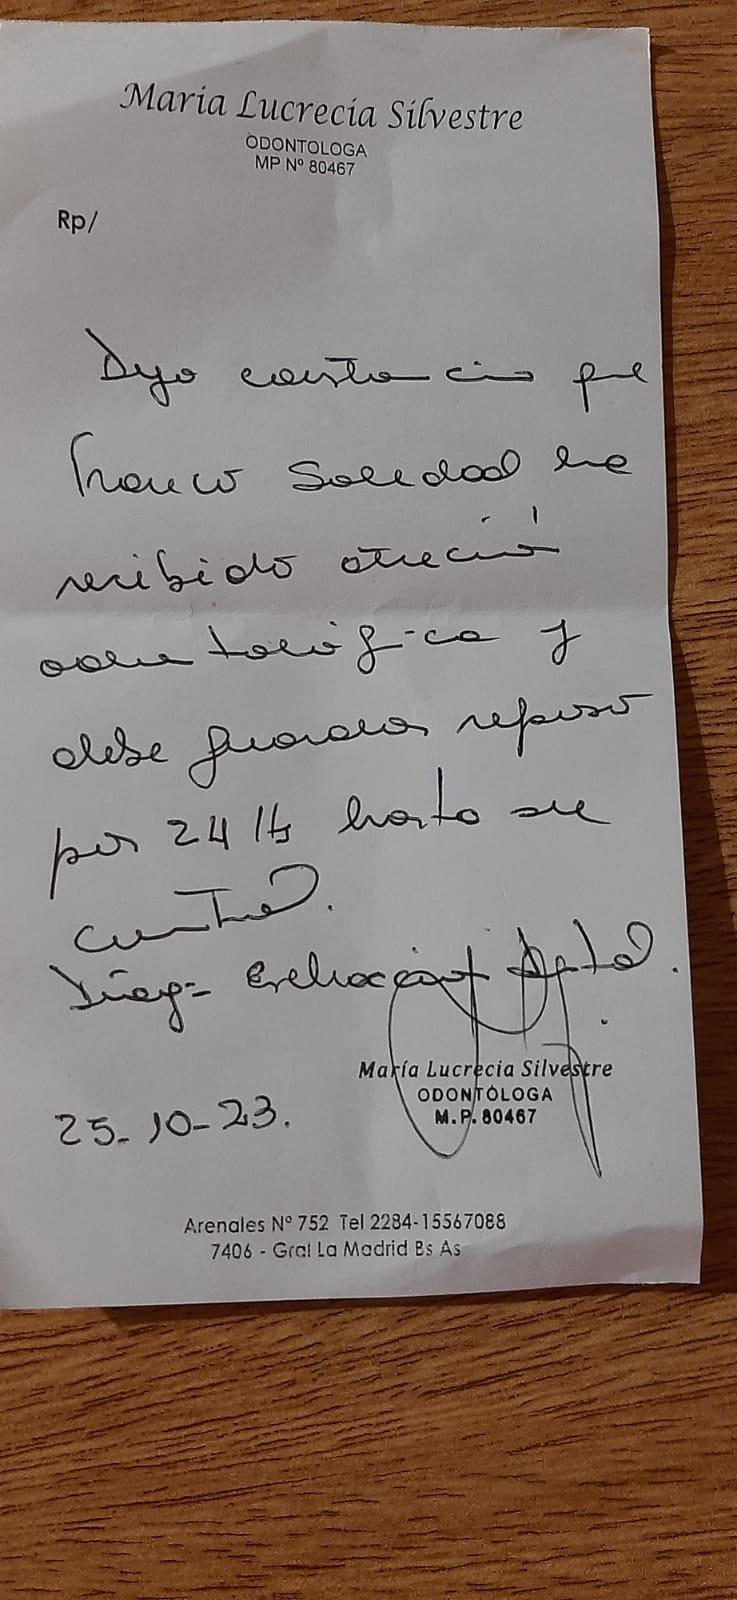 Maria Lucrecia Silvestre
ODONTOLOGA
MP Nº 80467
Rp/
Dejo constancia que
Franco Soledad ha
recibido atención
odontológica y
debe guardar reposo
por 24 hs hasta su
control.
Diag=
María Lucrecia Silvestre
ODONTÓLOGA
M.P. 80467
25-10-23.
Arenales Nº 752 Tel 2284-15567088
7406 - Gral La Madrid Bs As